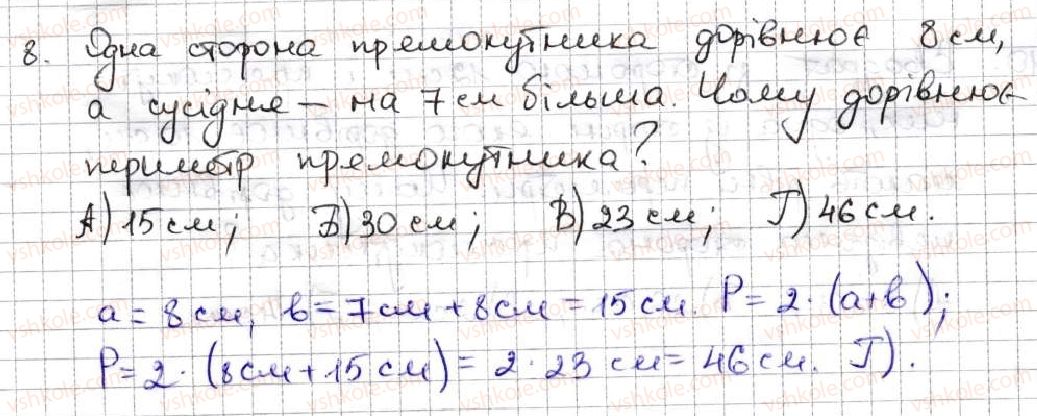 8. Одна сторона прямокутника дорівнює 8 см,
а сусідня – на 7 см більша. Чому дорівнює
периметр прямокутника?
А) 15 см; Б) 30 см; В) 23 см; Г) 46 см.
a = 8 см, b = 7 см + 8 см = 15 см. P = 2 · (a + b);
P = 2 · (8 см + 15 см) = 2 · 23 см = 46 см. Г).